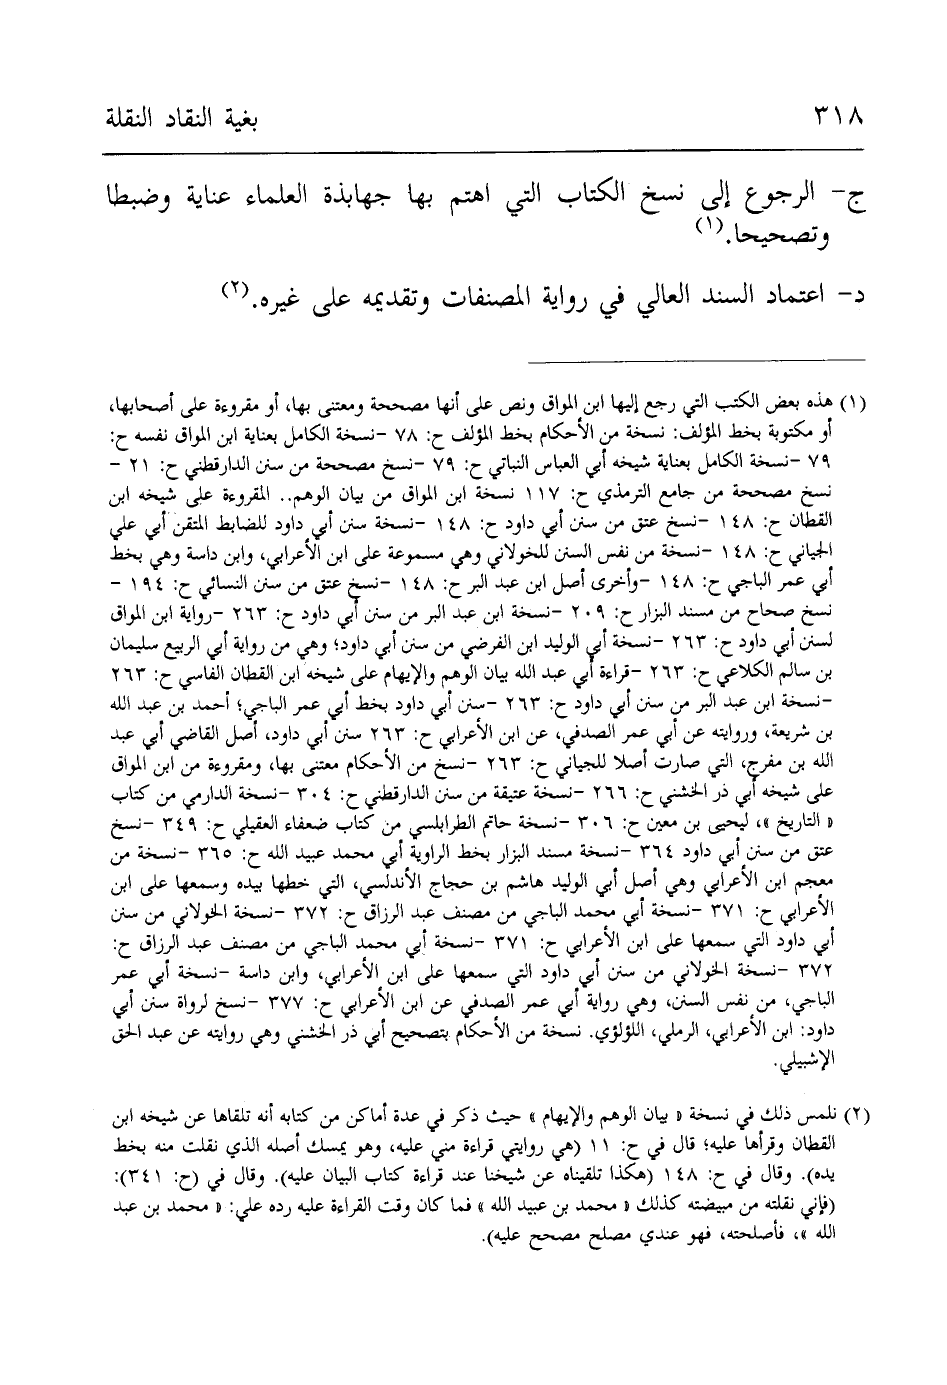 ٣١٨
بغية النقاد النقلة
ج- الرجوع إلى نسخ الكتاب التي اهتم بها جهابذة العلماء عناية وضبطا
وتصحيحا.(١)
د- اعتماد السند العالي في رواية المصنفات وتقديمه على غيره.(٢)
(١) هذه بعض الكتب التي رجع إليها ابن المواق ونص على أنها مصححة ومعتنى بها، أو مقروءة على أصحابها،
أو مكتوبة بخط المؤلف: نسخة من الأحكام بخط المؤلف ح: ٧٨ -نسخة الكامل بعناية ابن المواق نفسه ح:
٧٩ -نسخة الكامل بعناية شيخه أبي العباس النباتي ح: ٧٩ -نسخ مصححة من سنن الدارقطني ح: ٢١ -
نسخ مصححة من جامع الترمذي ح: ١١٧ نسخة ابن المواق من بيان الوهم.. المقروءة على شيخه ابن
القطان ح: ١٤٨ -نسخ عتق من سنن أبي داود ح: ١٤٨ -نسخة سنن أبي داود للضابط المتقن أبي علي
الجياني ح: ١٤٨ -نسخة من نفس السنن للخولاني وهي مسموعة على ابن الأعرابي، وابن داسة وهي بخط
أبي عمر الباجي ح: ١٤٨ -وأخرى أصل ابن عبد البر ح: ١٤٨ -نسخ عتق من سنن النسائي ح: ١٩٤ -
نسخ صحاح من مسند البزار ح: ٢٠٩ -نسخة ابن عبد البر من سنن أبي داود ح: ٢٦٣ -رواية ابن المواق
لسنن أبي داود ح: ٢٦٣ -نسخة أبي الوليد ابن الفرضي من سنن أبي داود؛ وهي من رواية أبي الربيع سليمان
بن سالم الكلاعي ح: ٢٦٣ -قراءة أبي عبد الله بيان الوهم والإيهام على شيخه ابن القطان الفاسي ح: ٢٦٣
-نسخة ابن عبد البر من سنن أبي داود ح: ٢٦٣ -سنن أبي داود بخط أبي عمر الباجي؛ أحمد بن عبد الله
بن شريعة، وروايته عن أبي عمر الصدفي، عن ابن الأعرابي ح: ٢٦٣ سنن أبي داود، أصل القاضي أبي عبد
الله بن مفرج، التي صارت أصلا للجياني ح: ٢٦٣ -نسخ من الأحكام معتنى بها، ومقروءة من ابن المواق
على شيخه أبي ذر الخشني ح: ٢٦٦ -نسخة عتيقة من سنن الدارقطني ح: ٣٠٤ -نسخة الدارمي من كتاب
« التاريخ »، ليحيى بن معين ح: ٣٠٦ -نسخة حاتم الطرابلسي من كتاب ضعفاء العقيلي ح: ٣٤٩ -نسخ
عتق من سنن أبي داود ٣٦٤ -نسخة مسند البزار بخط الراوية أبي محمد عبيد الله ح: ٣٦٥ -نسخة من
معجم ابن الأعرابي وهي أصل أبي الوليد هاشم بن حجاج الأندلسي، التي خطها بيده وسمعها على ابن
الأعرابي ح: ٣٧١ -نسخة أبي محمد الباجي من مصنف عبد الرزاق ح: ٣٧٢ -نسخة الخولاني من سنن
أبي داود التي سمعها على ابن الأعرابي ح: ٣٧١ -نسخة أبي محمد الباجي من مصنف عبد الرزاق ح:
٣٧٢ -نسخة الخولاني من سنن أبي داود التي سمعها على ابن الأعرابي، وابن داسة -نسخة أبي عمر
الباجي، من نفس السنن، وهي رواية أبي عمر الصدفي عن ابن الأعرابي ح: ٣٧٧ -نسخ لرواة سنن أبي
داود: ابن الأعرابي، الرملي، اللؤلؤي. نسخة من الأحكام بتصحيح أبي ذر الخشني وهي روايته عن عبد الحق
الإشبيلي.
(٢) نلمس ذلك في نسخة « بيان الوهم والإيهام » حيث ذكر في عدة أماكن من كتابه أنه تلقاها عن شيخه ابن
القطان وقرأها عليه؛ قال في ح: ١١ (هي روايتي قراءة مني عليه، وهو يمسك أصله الذي نقلت منه بخط
يده). وقال في ح: ١٤٨ (هكذا تلقيناه عن شيخنا عند قراءة كتاب البيان عليه). وقال في (ح: ٣٤١):
(فإني نقلته من مبيضته كذلك « محمد بن عبيد الله » فما كان وقت القراءة عليه رده علي: « محمد بن عبد
الله »، فأصلحته، فهو عندي مصلح مصحح عليه).